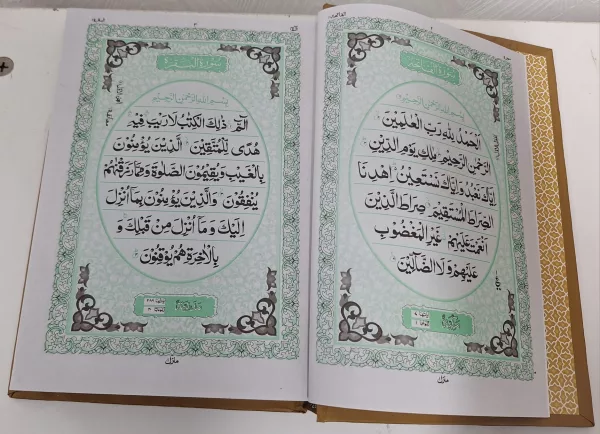 سورة الفاتحة
بسم الله الرحمن الرحيم
اَلْحَمْدُ لِلّٰهِ رَبِّ الْعٰلَمِیْنَ
الرَّحْمٰنِ الرَّحِیْمِ مٰلِكِ یَوْمِ الدِّیْنِ
اِیَّاكَ نَعْبُدُ وَ اِیَّاكَ نَسْتَعِیْنُ اِهْدِنَا
الصِّرَاطَ الْمُسْتَقِیْمَ صِرَاطَ الَّذِیْنَ
اَنْعَمْتَ عَلَیْهِمْ غَیْرِ الْمَغْضُوْبِ
عَلَیْهِمْ وَ لَا الضَّآلِّیْنَ
منزل
سورة البقرة
بسم الله الرحمن الرحيم
الٓمّٓ ذٰلِكَ الْكِتٰبُ لَا رَیْبَ فِیْهِ
هُدًی لِّلْمُتَّقِیْنَ الَّذِیْنَ یُؤْمِنُوْنَ
بِالْغَیْبِ وَ یُقِیْمُوْنَ الصَّلٰوةَ وَ مِمَّا رَزَقْنٰهُمْ
یُنْفِقُوْنَ وَ الَّذِیْنَ یُؤْمِنُوْنَ بِمَاۤ اُنْزِلَ
اِلَیْكَ وَ مَاۤ اُنْزِلَ مِنْ قَبْلِكَ وَ
بِالْاٰخِرَةِ هُمْ یُوْقِنُوْنَ
منزل